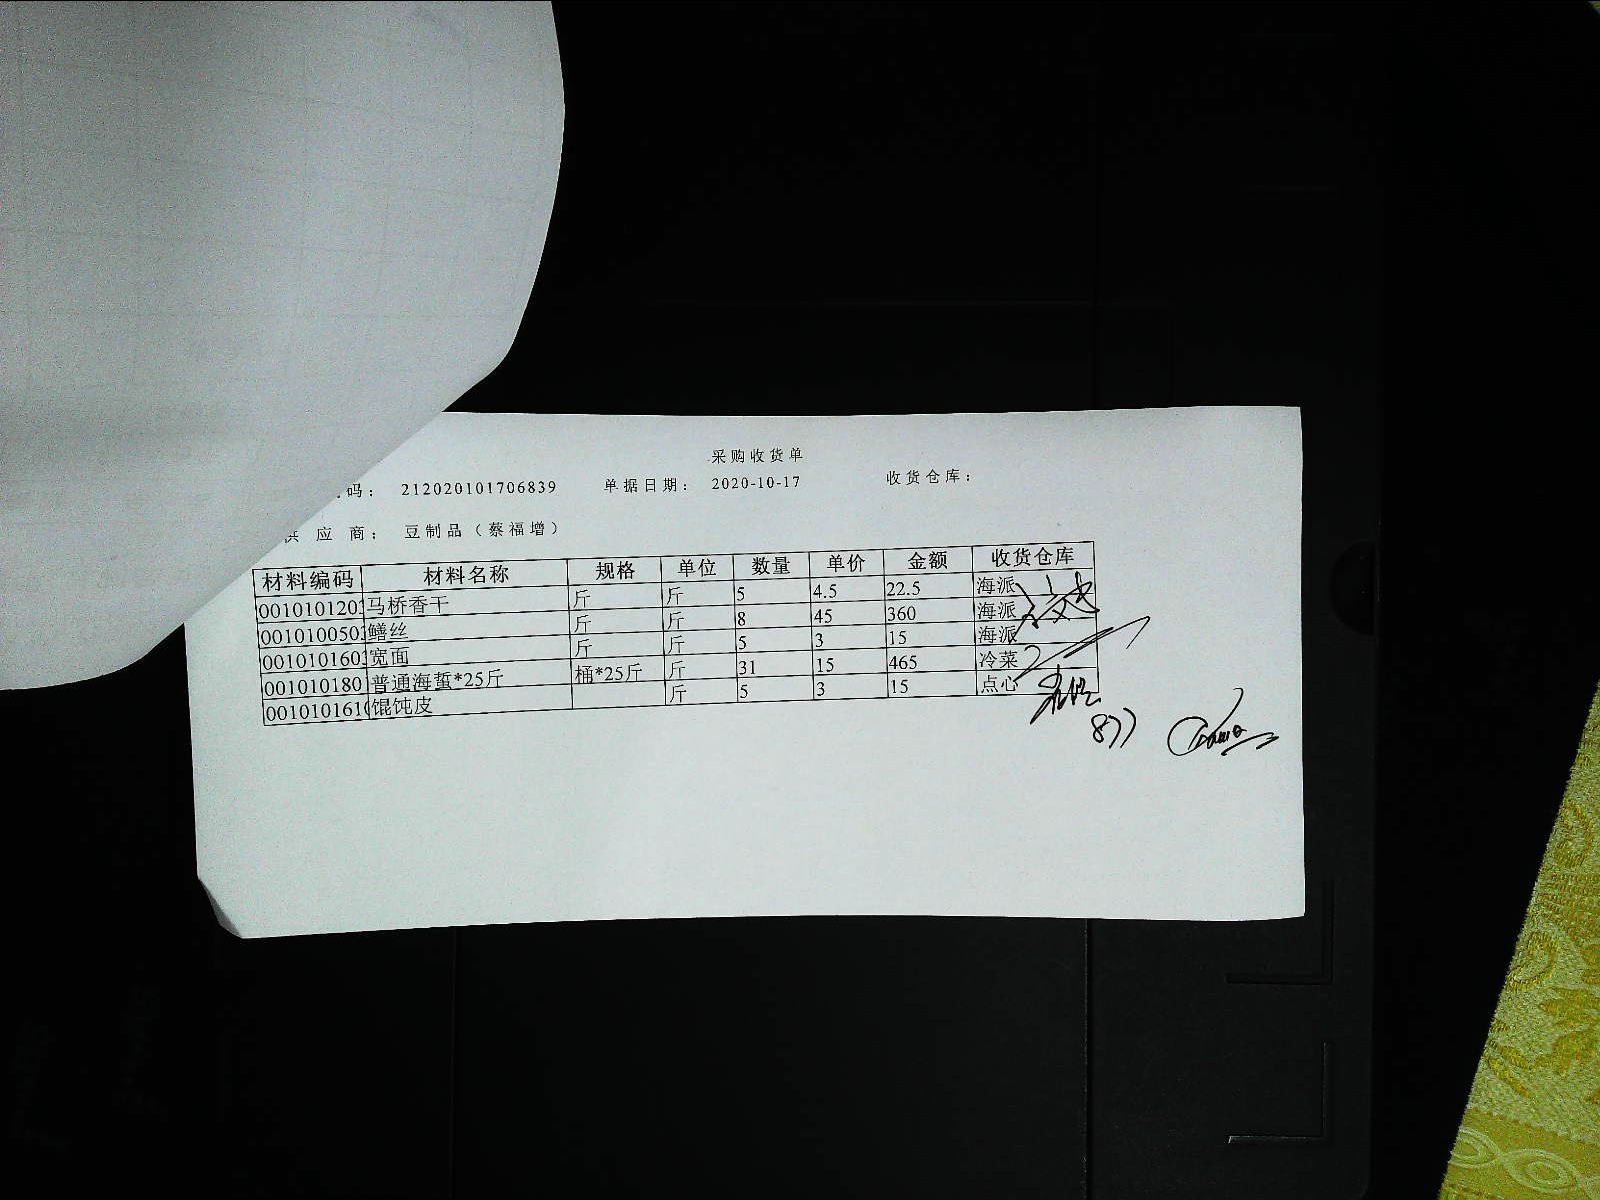 采购收货单
码： 212020101706839 单据日期： 2020-10-17 收货仓库：
供 应 商： 豆制品（蔡福增）
材料编码 材料名称 规格 单位 数量 单价 金额 收货仓库
001010120 马桥香干 斤 斤 5 4.5 22.5 海派
001010050 鳝丝 斤 斤 8 45 360 海派
001010160 宽面 斤 斤 5 3 15 海派
001010180 普通海蜇*25斤 桶*25斤 斤 31 15 465 冷菜
001010161 馄饨皮 斤 5 3 15 点心
877